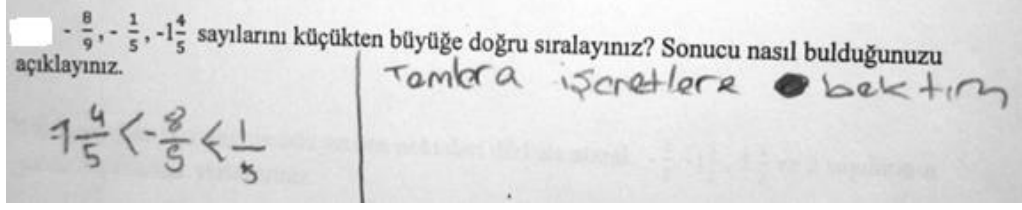 - 8/9, - 1/5, -1 4/5 sayılarını küçükten büyüğe doğru sıralayınız? Sonucu nasıl bulduğunuzu
açıklayınız.
Tamlara işaretlere baktım
-1 4/5 < - 8/5 < 1/5